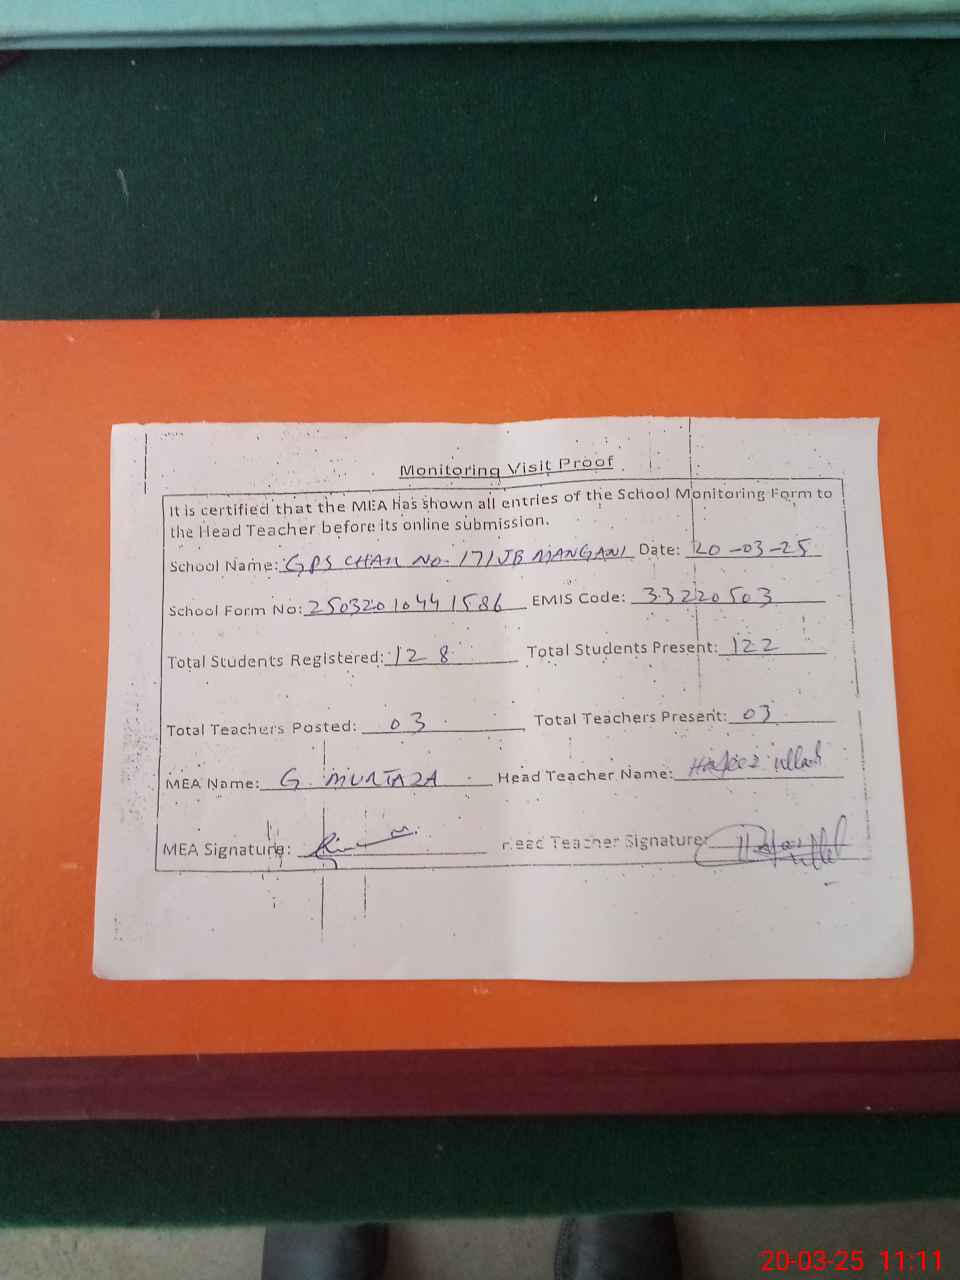 Monitoring Visit Proof
It is certified that the MEA has shown all entries of the School Monitoring Form to
the Head Teacher before its online submission.
School Name: GPS CHAK NO. 171JB MANGANI Date: 20-03-25
School Form No: 25032010441586 EMIS Code: 33220503
Total Students Registered: 128 Total Students Present: 122
Total Teachers Posted: 03 Total Teachers Present: 03
MEA Name: G. MURTAZA Head Teacher Name: Hafeez ullah
MEA Signature: Head Teacher Signature:
20-03-25 11:11